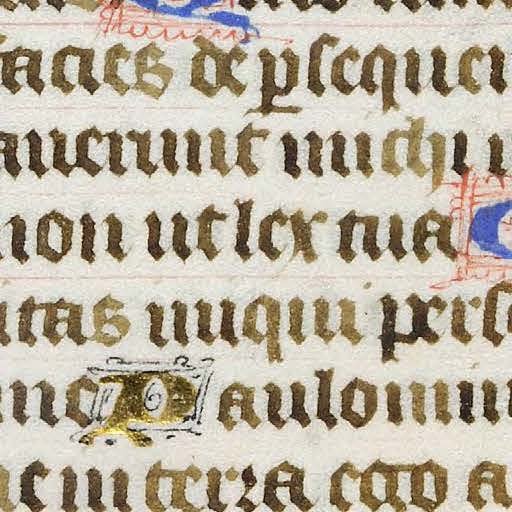 facies de psequen
auerunt michi
non ut lex tua
itas iniqui perse
me Paulomin
me in terra ego a